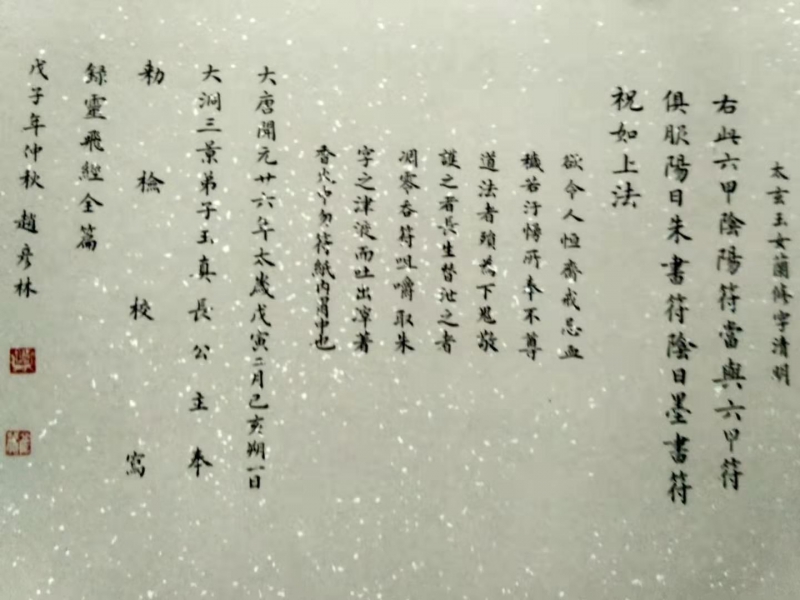 太玄玉女蘭脩字清明
右此六甲陰陽符當與六甲符
俱服陽日朱書符陰日墨書符
祝如上法
欲令人恒齋戒忌血
穢若汙慢所奉不尊
道法者頭為下鬼敬
護之者長生替沘之者
凋零吞符咀嚼取朱
字之津液而吐出滓著
香火中勿符紙內胃中也
大唐開元廿六年太歲戊寅二月己亥朔一日
大洞三景弟子玉真長公主奉
勅檢校寫
錄靈飛經全篇
戊子年仲秋 趙彦林